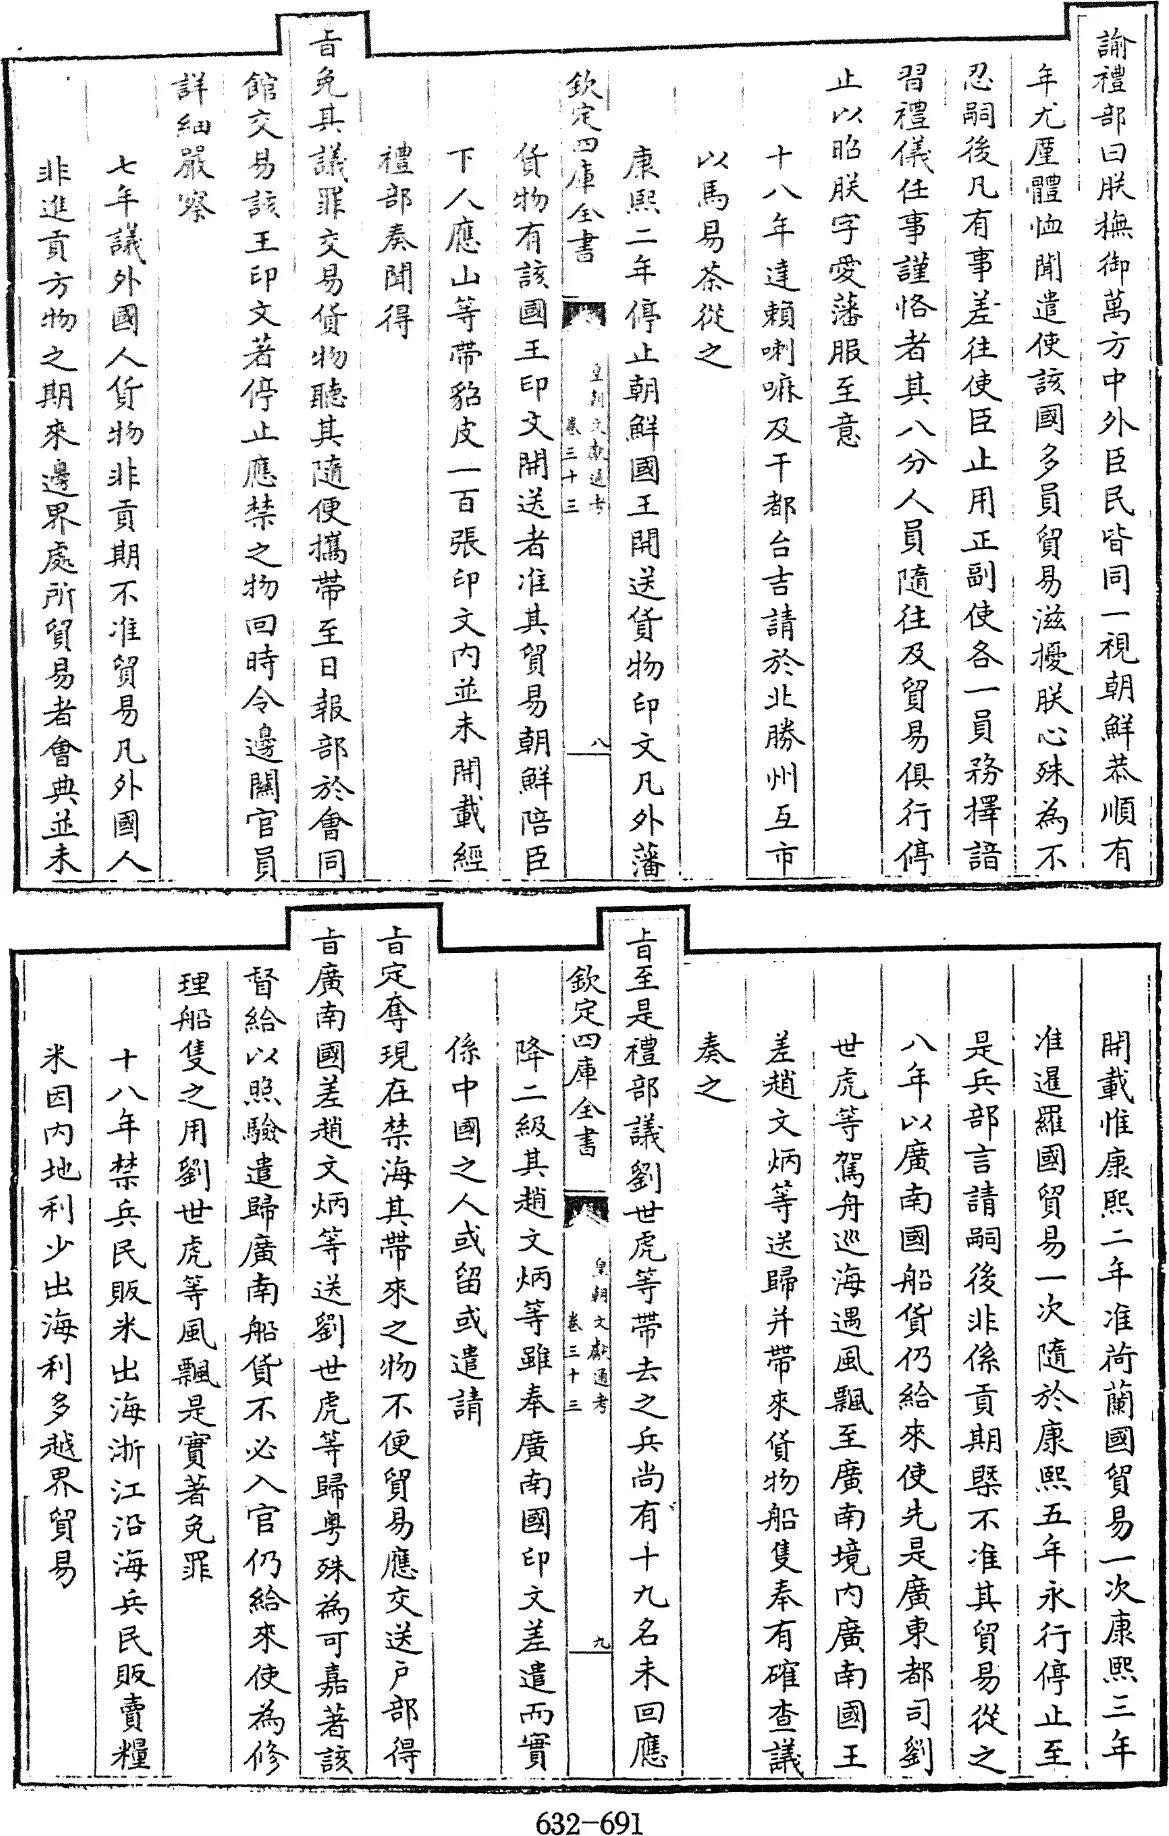 諭禮部曰朕撫御萬方中外臣民皆同一視朝鮮恭順有
年尤廑體恤聞遣使該國多員貿易滋擾朕心殊為不
忍嗣後凡有事差往使臣止用正副使各一員務擇諳
習禮儀任事謹恪者其八分人員隨往及貿易俱行停
止以昭朕字愛藩服至意
十八年達賴喇嘛及干都台吉請於北勝州互市
以馬易茶從之
康熙二年停止朝鮮國王開送貨物印文凡外藩
欽定四庫全書
皇朝文獻通考
卷三十三
八
貨物有該國王印文開送者准其貿易朝鮮陪臣
下人應山等帶貂皮一百張印文內並未開載經
禮部奏聞得
旨免其議罪交易貨物聽其隨便攜帶至日報部於會同
館交易該王印文著停止應禁之物回時令邊關官員
詳細嚴察
七年議外國人貨物非貢期不准貿易凡外國人
非進貢方物之期來邊界處所貿易者會典並未
開載惟康熙二年准荷蘭國貿易一次康熙三年
准暹羅國貿易一次隨於康熙五年永行停止至
是兵部言請嗣後非係貢期槩不准其貿易從之
八年以廣南國船貨仍給來使先是廣東都司劉
世虎等駕舟巡海遇風飄至廣南境內廣南國王
差趙文炳等送歸并帶來貨物船隻奉有確查議
奏之
旨至是禮部議劉世虎等帶去之兵尚有十九名未回應
欽定四庫全書
皇朝文獻通考
卷三十三
九
降二級其趙文炳等雖奉廣南國印文差遣而實
係中國之人或留或遣請
旨定奪現在禁海其帶來之物不便貿易應交送戶部得
旨廣南國差趙文炳等送劉世虎等歸粵殊為可嘉著該
督給以照驗遣歸廣南船貨不必入官仍給來使為修
理船隻之用劉世虎等風飄是實著免罪
十八年禁兵民販米出海浙江沿海兵民販賣糧
米因內地利少出海利多越界貿易
632-691